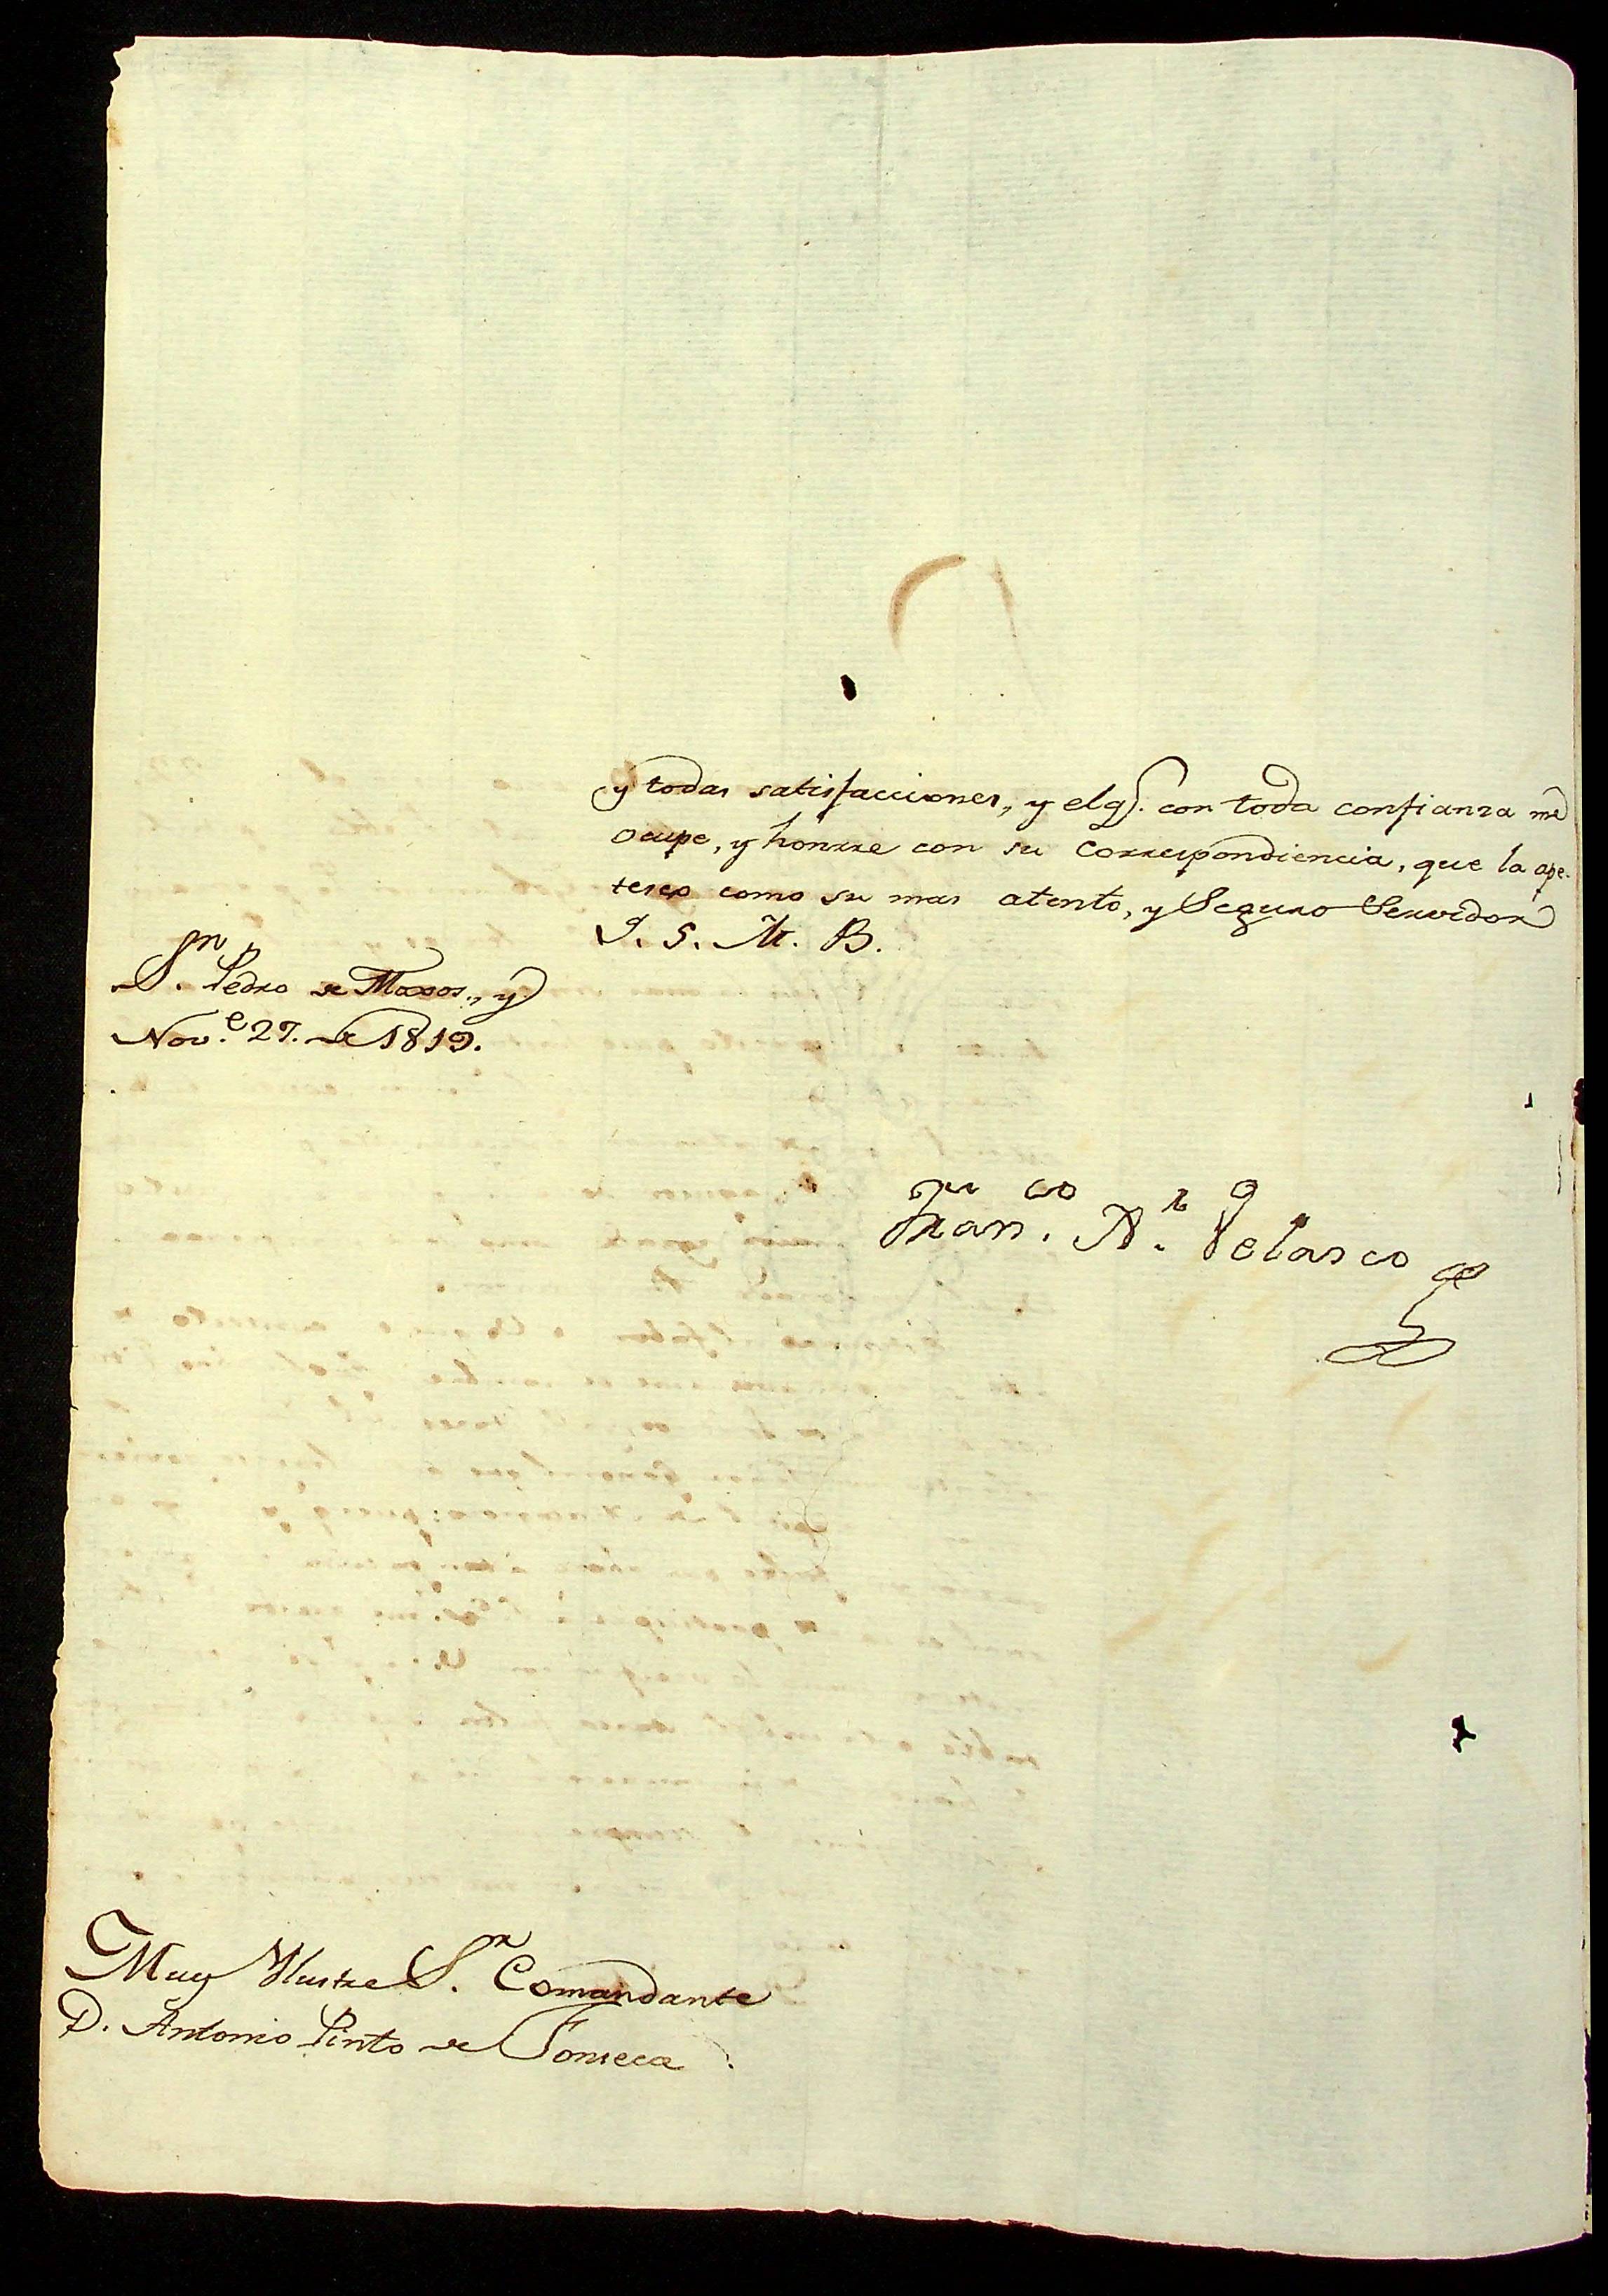 y todas satisfacciones, y el q.e con toda confianza me
ocupe, y honrre con su correspondiencia, que la ape-
tesco como su mas atento, y Seguro Servidor
Q. S. M. B.
S.n Pedro de Moxos, y
Nov.e 27. de 1819.
Fran.co X.r Velasco
Muy Ilustre S.r Comandante
D. Antonio Pinto de Fonseca